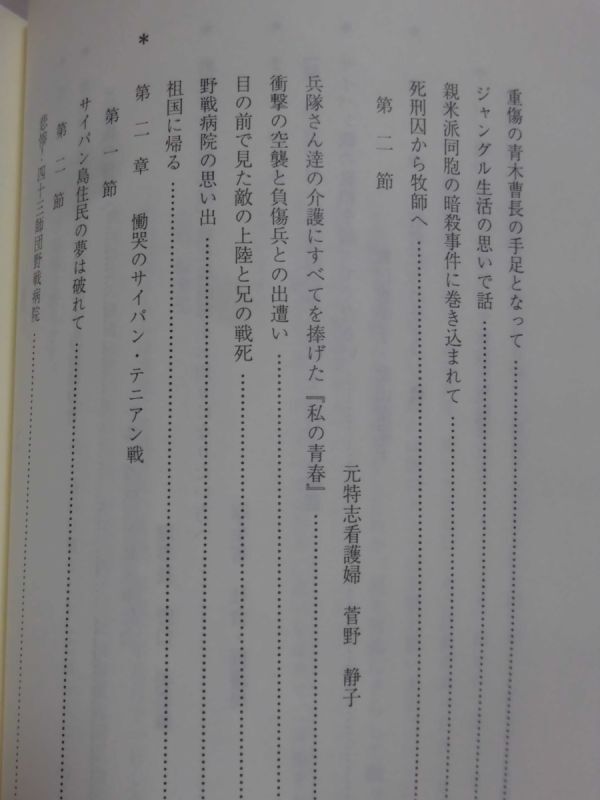 重傷の青木曹長の手足となって……………………
ジャングル生活の思いで話……………………
親米派同胞の暗殺事件に巻き込まれて……………………
死刑囚から牧師へ……………………
第二節
元特志看護婦 菅野 静子
兵隊さん達の介護にすべてを捧げた『私の青春』……………………
衝撃の空襲と負傷兵との出遭い……………………
目の前で見た敵の上陸と兄の戦死……………………
野戦病院の思い出……………………
祖国に帰る……………………
* 第二章 慟哭のサイパン・テニアン戦
第一節
サイパン島住民の夢は破れて……………………
第二節
悲惨・四十三師団野戦病院……………………